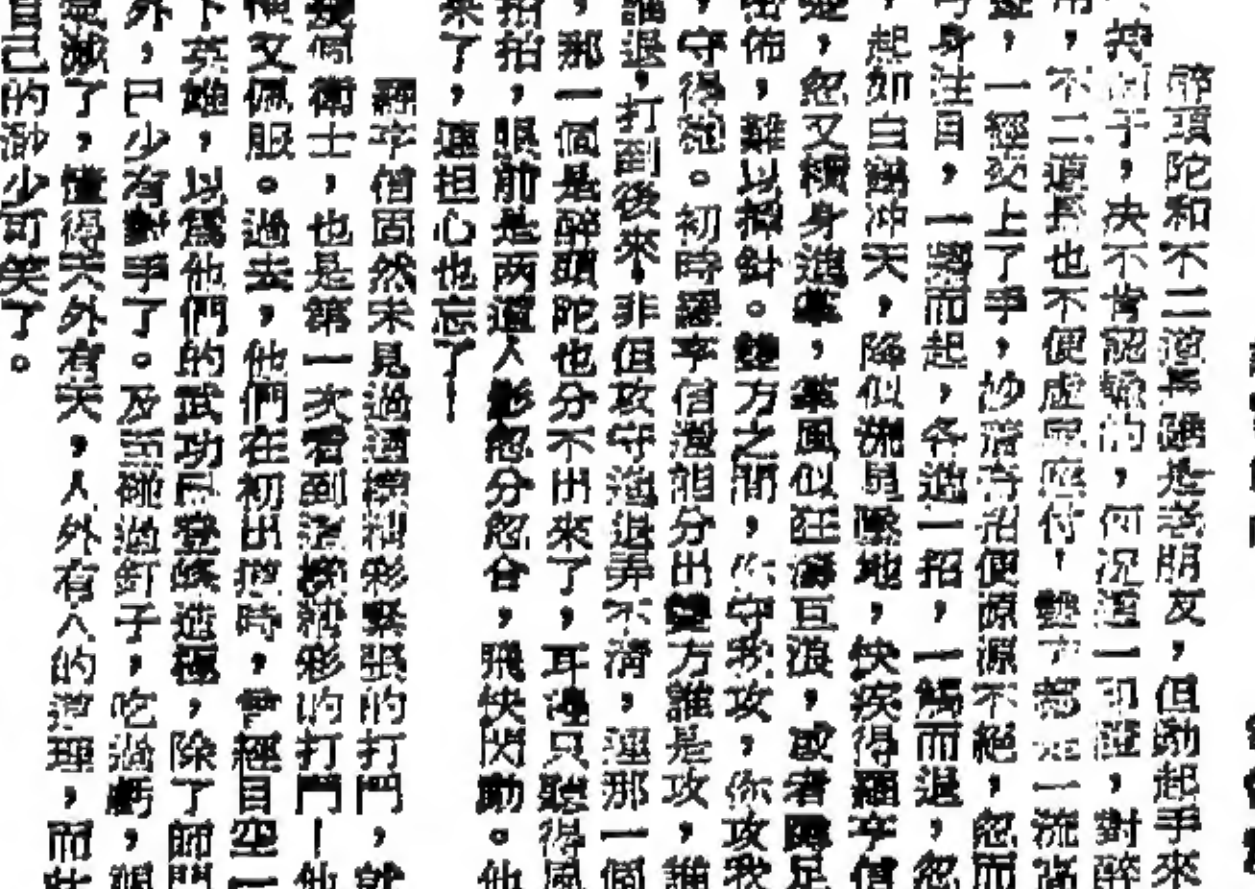 醉頭陀和不二道長雖是老朋友，但動起手來
手，決不肯認輸的，何況這一印證，對醉
用，不二道長也不便虛應付，雙方都是一流高
，一經交上了手，妙着奇招便源源不絕，忽而
身注目，一觸而起，各進一招，一觸而退，忽
，起如白鶴冲天，降似流星墜地，快疾得羅卒僧
，忽又橫身進，風似狂濤巨浪，或者蹲足
密佈，難以插針。雙方之間，你守我攻，你攻我
，守得。初時羅卒僧還能分出雙方誰是攻，誰
誰退，打到後來，非但攻守進退弄不清，連那一個
，那一個是醉頭陀也分不出來了，耳邊只聽得風
拍拍，眼前是两道人影忽分忽合，飛快閃動。他
來了，連担心也忘了！
羅卒僧固然未見過這樣精彩緊張的打鬥，就
幾個衛士，也是第一次看到這樣精彩的打鬥！他
又佩服。過去，他們在初出道時，曾經目空一
下英雄，以爲他們的武功已登峰造極，除了師門
外，已少有對手了。及至碰過釘子，吃過虧，
氣減了，懂得天外有天，人外有人的道理，而此
自己的渺少可笑了。